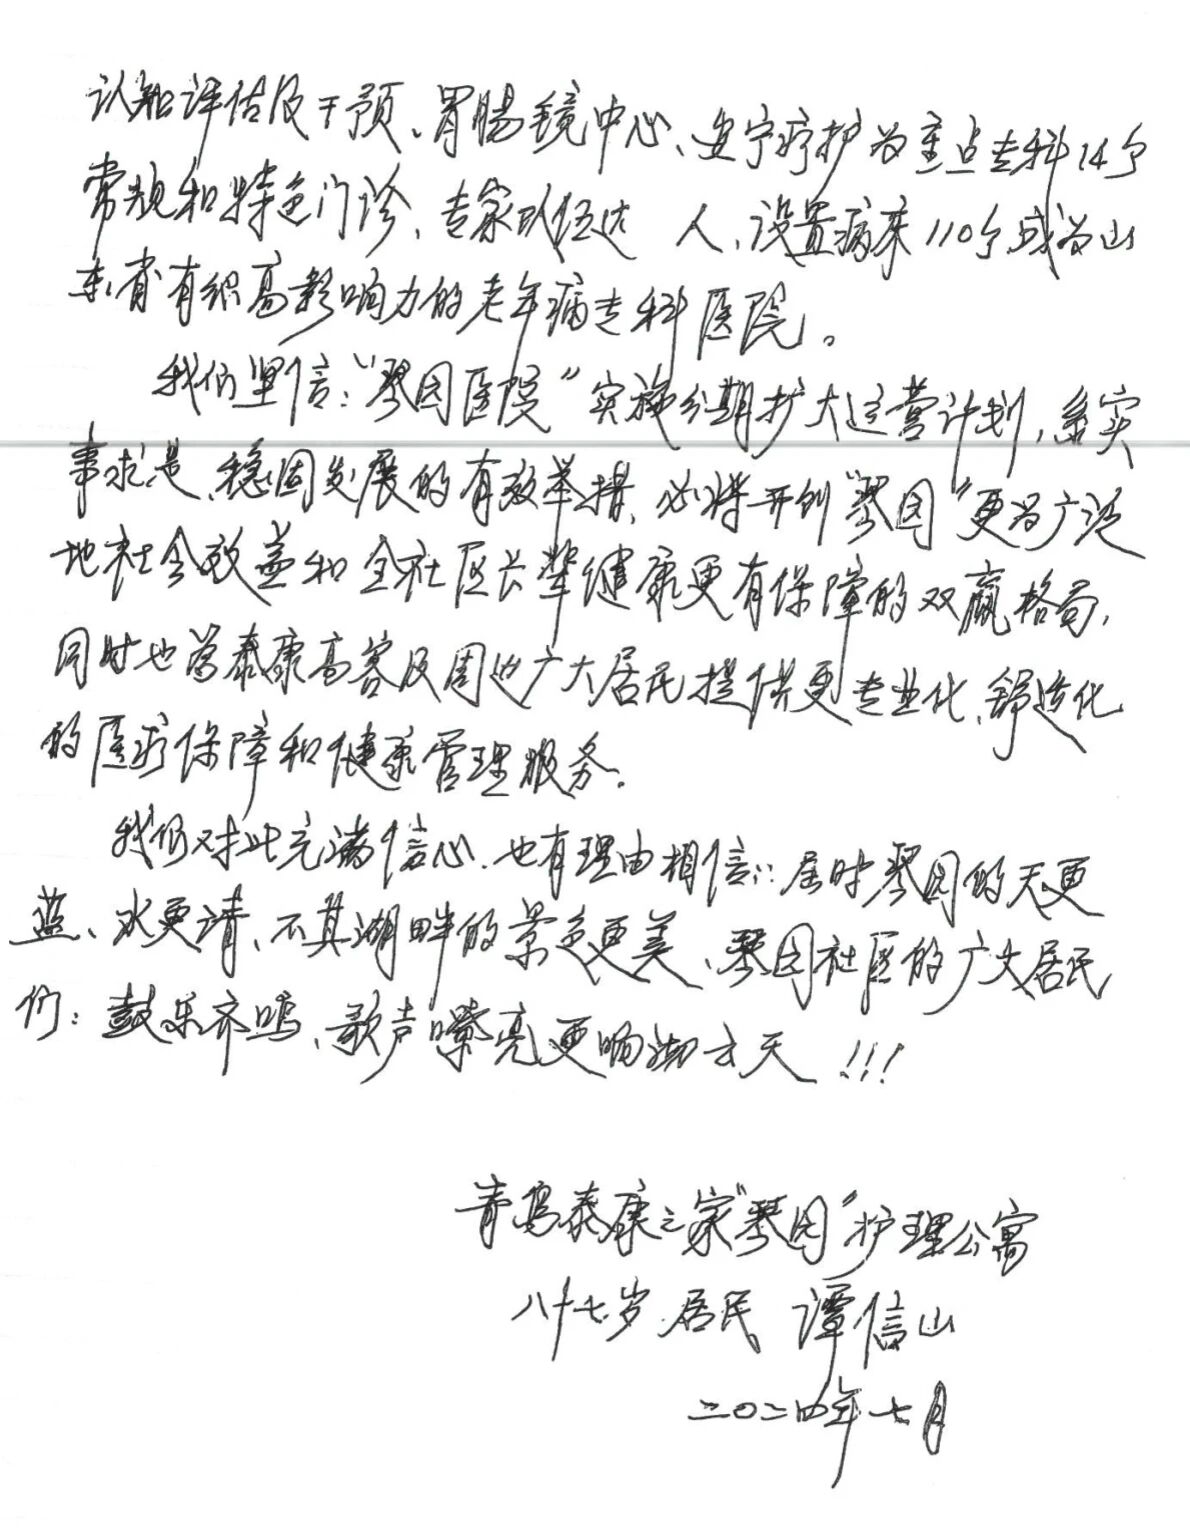 认知评估及干预、胃肠镜中心、安宁疗护为重点专科14个
常规和特色门诊、专家队伍达 人、设置病床110个成为山
东省有织高影响力的老年病专科医院。
我们坚信：“琴园医院”实施分期扩大运营计划，系实
事求是、稳固发展的有效举措，必将开创“琴园”更为广泛
地社会效益和全社区长辈健康更有保障的双赢格局，
同时也为泰康高客及周边广大居民提供更专业化、舒适化
的医疗保障和健康管理服务。
我们对此充满信心、也有理由相信：届时琴园的天更
蓝、水更清、不其湖畔的景色更美、琴园社区的广大居民
们：鼓乐齐鸣、歌声嘹亮更响彻云天！！！
青岛泰康之家“琴园”护理公寓
八十七岁居民 谭信山
二〇二四年七月